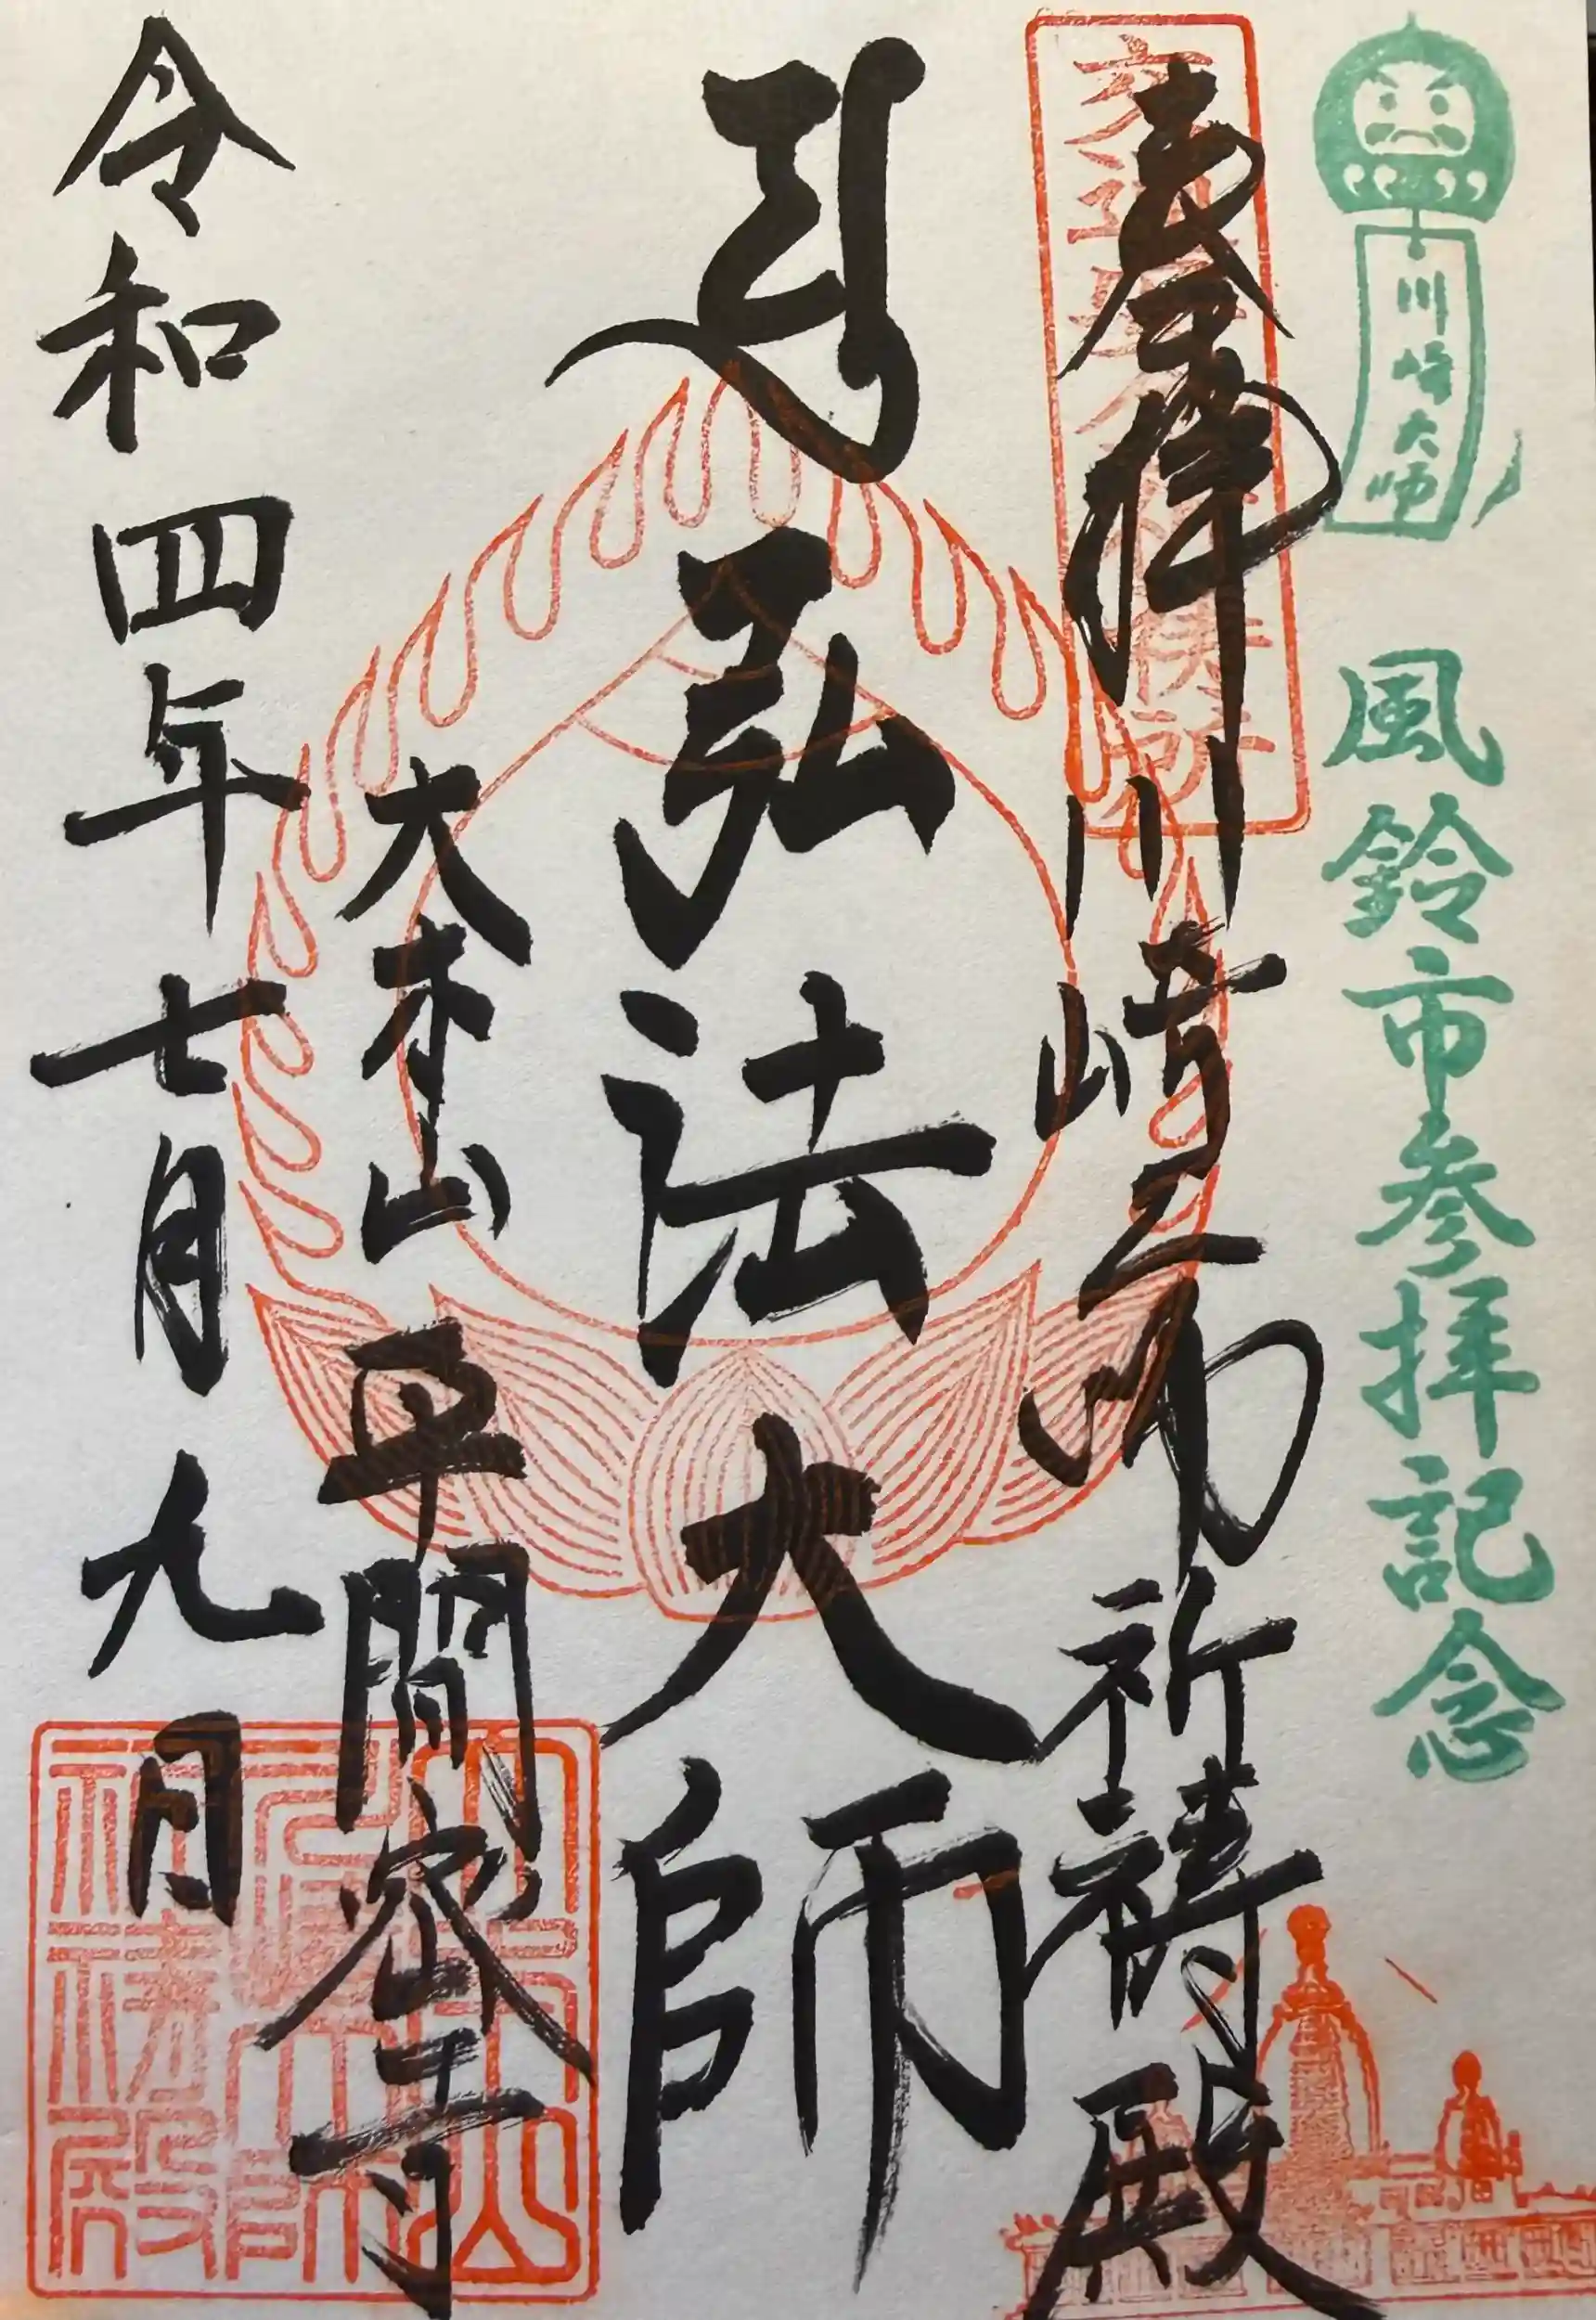 川崎大師
風鈴市参拝記念
奉拝 川崎大師 祈祷殿
弘法大師
大本山 平間寺
令和四年七月九日